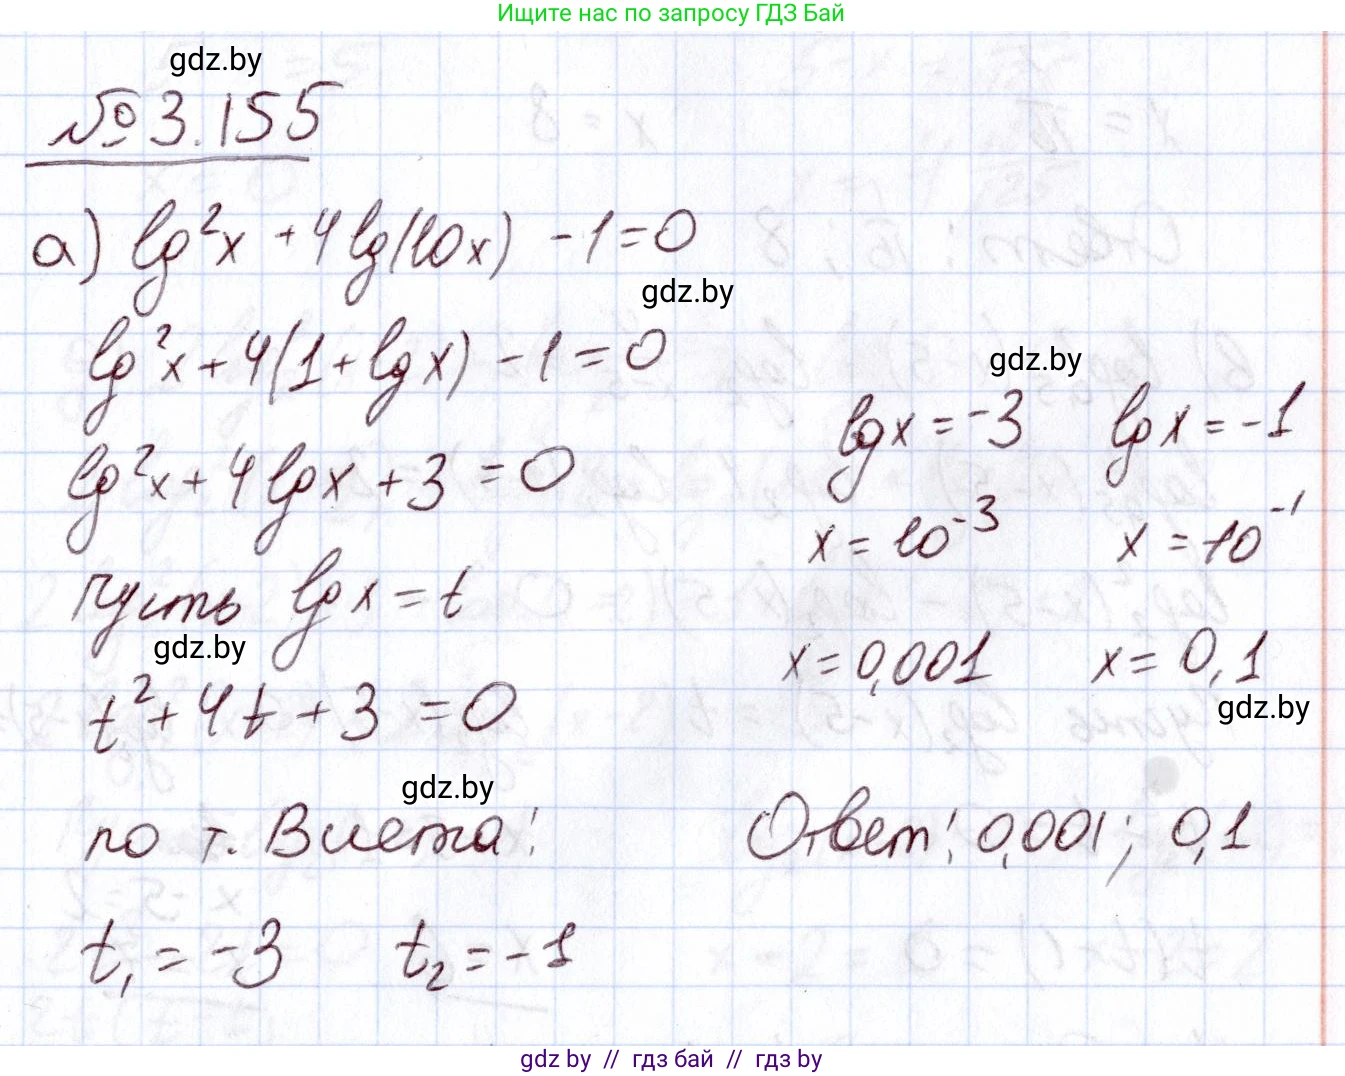 Ищите нас по запросу ГДЗ Бай
gdz.by
№ 3.155
а) lg²x + 4lg(10x) - 1 = 0
gdz.by
lg²x + 4(1 + lgx) - 1 = 0
lg²x + 4lgx + 3 = 0
пусть lgx = t
gdz.by
t² + 4t + 3 = 0
gdz.by
по т. Виета:
t₁ = -3 t₂ = -1
gdz.by
lgx = -3 lgx = -1
x = 10⁻³ x = 10⁻¹
x = 0,001 x = 0,1
gdz.by
Ответ: 0,001; 0,1
gdz by // гдз бай // гдз by